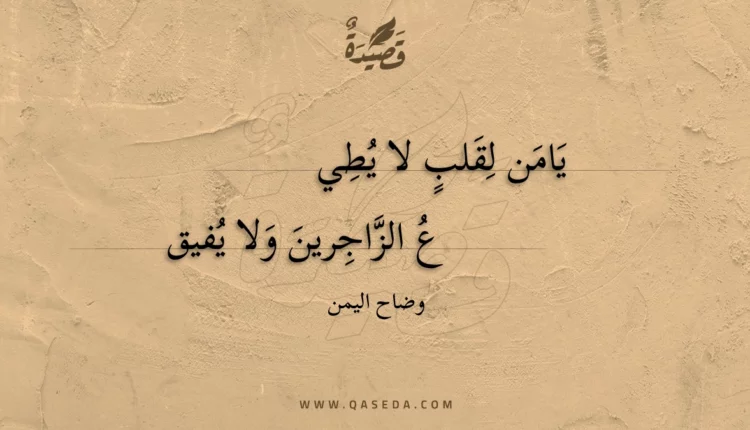 قَصِيْدَةٌ
يَامَن لِقَلبٍ لا يُطِي
عُ الزَّاجِرينَ وَلا يُفيق
وضاح اليمن
WWW.QASEDA.COM